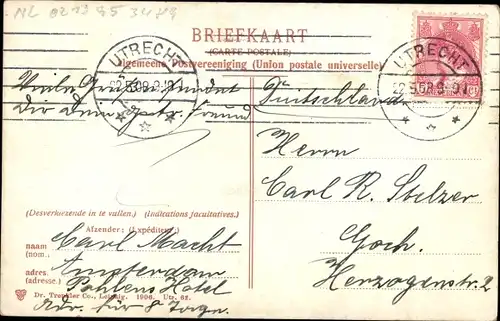 NL 0213 95 3489
BRIEFKAART
(CARTE POSTALE)
Algemeene Postvereeniging (Union postale universelle)
UTRECHT
22.5.08.9-
UTRECHT
22.5.08.9-
Viele Grüße sendet
Dir Dein Freund
Duitschland
Herrn
Carl R. Stelzer
Goch.
Herzogenstr. 2
(Desverkiezende in te vullen.) (Indications facultatives.)
Afzender: (Expéditeur:)
naam (nom.) Carl Macht
adres. (adresse.) Amsterdam
Pohlens Hotel
Dr. Trenkler Co., Leipzig. 1906. Utr. 62.
Adr. für 8 Tage.